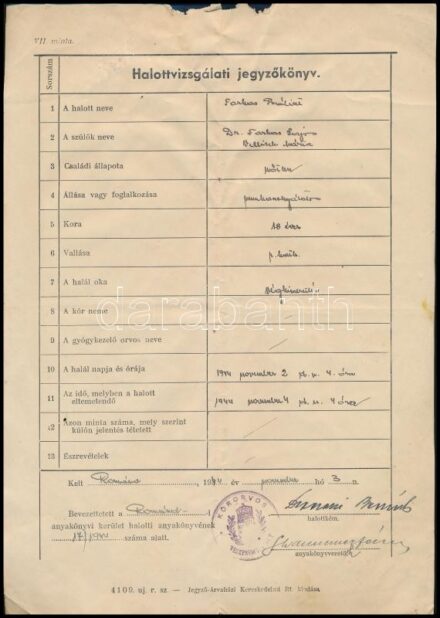 VII. minta.
Sorszám
Halottvizsgálati jegyzőkönyv.
1 A halott neve Farkas
2 A szülők neve Dr. Farkas
Mária
3 Családi állapota nőtlen
4 Állása vagy foglalkozása
5 Kora 18 éves
6 Vallása r. kath.
7 A halál oka
8 A kór neme
9 A gyógykezelő orvos neve
10 A halál napja és órája 1944 november 2 d. u. 4 óra
11 Az idő, melyben a halott eltemetendő 1944 november 4 d. u. 4 óra
12 Azon minta száma, mely szerint külön jelentés tétetett
13 Észrevételek
darabanth
Kelt Románd, 1944 év november hó 3 n.
KÖRORVOS
Bevezettetett a Románd-
halottkém.
anyakönyvi kerület halotti anyakönyvének
17/1944 száma alatt.
anyakönyvvezető
4109. uj. r. sz. — Jegyző-Árvaházi Kereskedelmi Rt. kiadása.